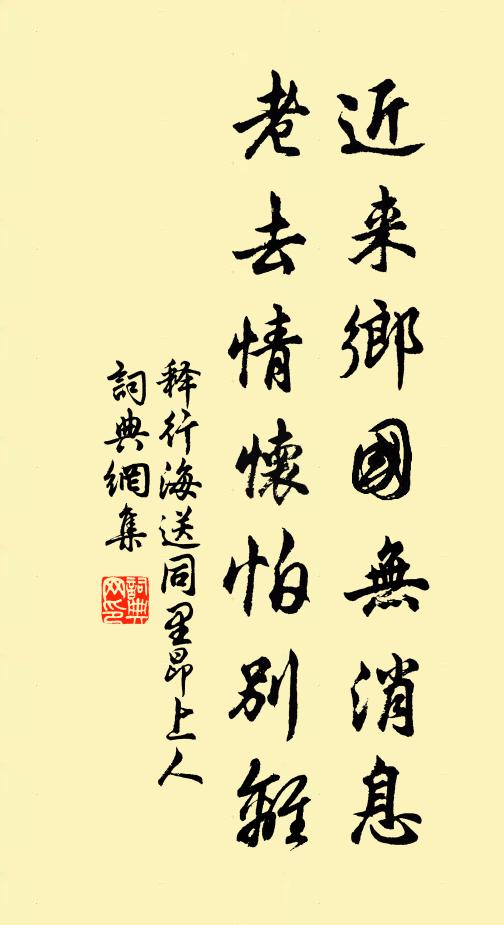 近来鄉國無消息
老去情懷怕別離
释行海送同里昂上人
詞典網集
詞典网印